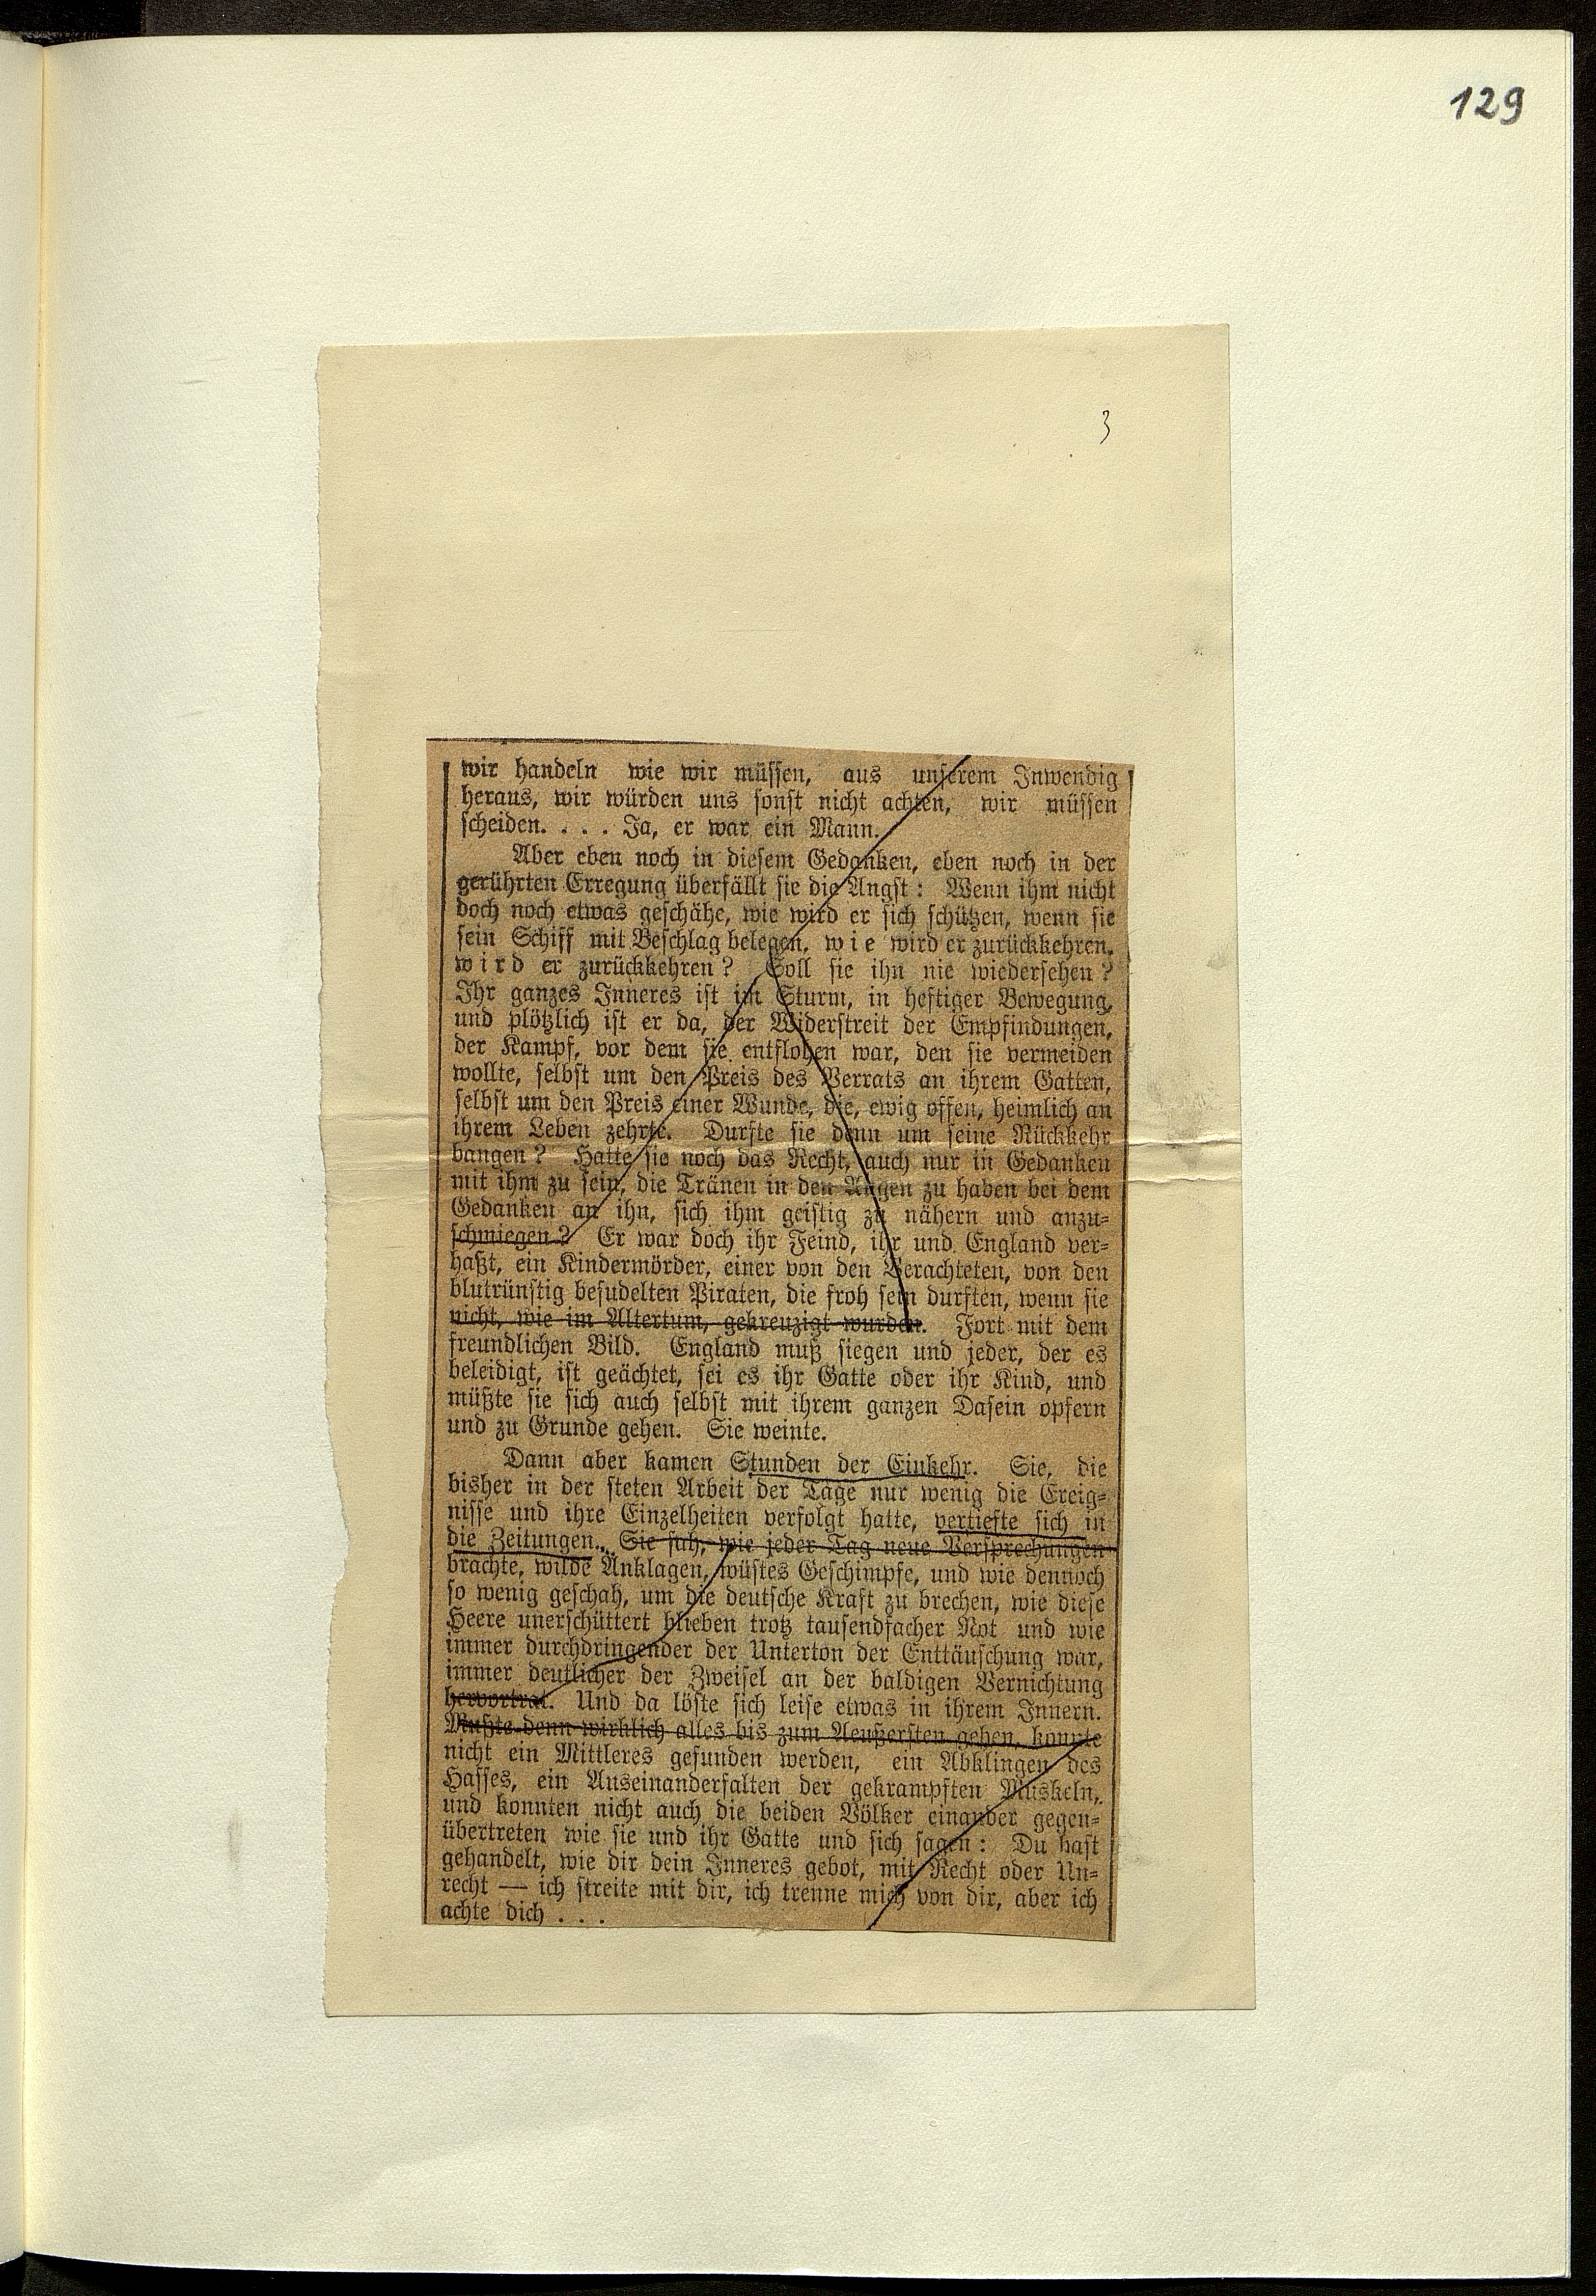 129
3
wir handeln wie wir müssen, aus unserem Inwendig
heraus, wir würden uns sonst nicht achten, wir müssen
scheiden. . . . Ja, er war ein Mann.
Aber eben noch in diesem Gedanken, eben noch in der
gerührten Erregung überfällt sie die Angst: Wenn ihm nicht
doch noch etwas geschähe, wie wird er sich schützen, wenn sie
sein Schiff mit Beschlag belegen, wie wird er zurückkehren,
wird er zurückkehren? Soll sie ihn nie wiedersehen?
Ihr ganzes Inneres ist im Sturm, in heftiger Bewegung,
und plötzlich ist er da, der Widerstreit der Empfindungen,
der Kampf, vor dem sie entflohen war, den sie vermeiden
wollte, selbst um den Preis des Verrats an ihrem Gatten,
selbst um den Preis einer Wunde, die, ewig offen, heimlich an
ihrem Leben zehrte. Durfte sie denn um seine Rückkehr
bangen? Hatte sie noch das Recht, auch nur in Gedanken
mit ihm zu sein, die Tränen in den Augen zu haben bei dem
Gedanken an ihn, sich ihm geistig zu nähern und anzu-
schmiegen? Er war doch ihr Feind, ihr und England ver-
haßt, ein Kindermörder, einer von den Verachteten, von den
blutrünstig besudelten Piraten, die froh sein durften, wenn sie
nicht, wie im Altertum, gekreuzigt wurden. Fort mit dem
freundlichen Bild. England muß siegen und jeder, der es
beleidigt, ist geächtet, sei es ihr Gatte oder ihr Kind, und
müßte sie sich auch selbst mit ihrem ganzen Dasein opfern
und zu Grunde gehen. Sie weinte.
Dann aber kamen Stunden der Einkehr. Sie, die
bisher in der steten Arbeit der Tage nur wenig die Ereig-
nisse und ihre Einzelheiten verfolgt hatte, vertiefte sich in
die Zeitungen. Sie sah, wie jeder Tag neue Versprechungen
brachte, wilde Anklagen, wüstes Geschimpfe, und wie dennoch
so wenig geschah, um die deutsche Kraft zu brechen, wie diese
Heere unerschüttert blieben trotz tausendfacher Not und wie
immer durchdringender der Unterton der Enttäuschung war,
immer deutlicher der Zweifel an der baldigen Vernichtung
hervortrat. Und da löste sich leise etwas in ihrem Innern.
Mußte denn wirklich alles bis zum Aeußersten gehen, konnte
nicht ein Mittleres gefunden werden, ein Abklingen des
Hasses, ein Auseinanderfalten der gekrampften Muskeln,
und konnten nicht auch die beiden Völker einander gegen-
übertreten wie sie und ihr Gatte und sich sagen: Du hast
gehandelt, wie dir dein Inneres gebot, mit Recht oder Un-
recht — ich streite mit dir, ich trenne mich von dir, aber ich
achte dich . . .